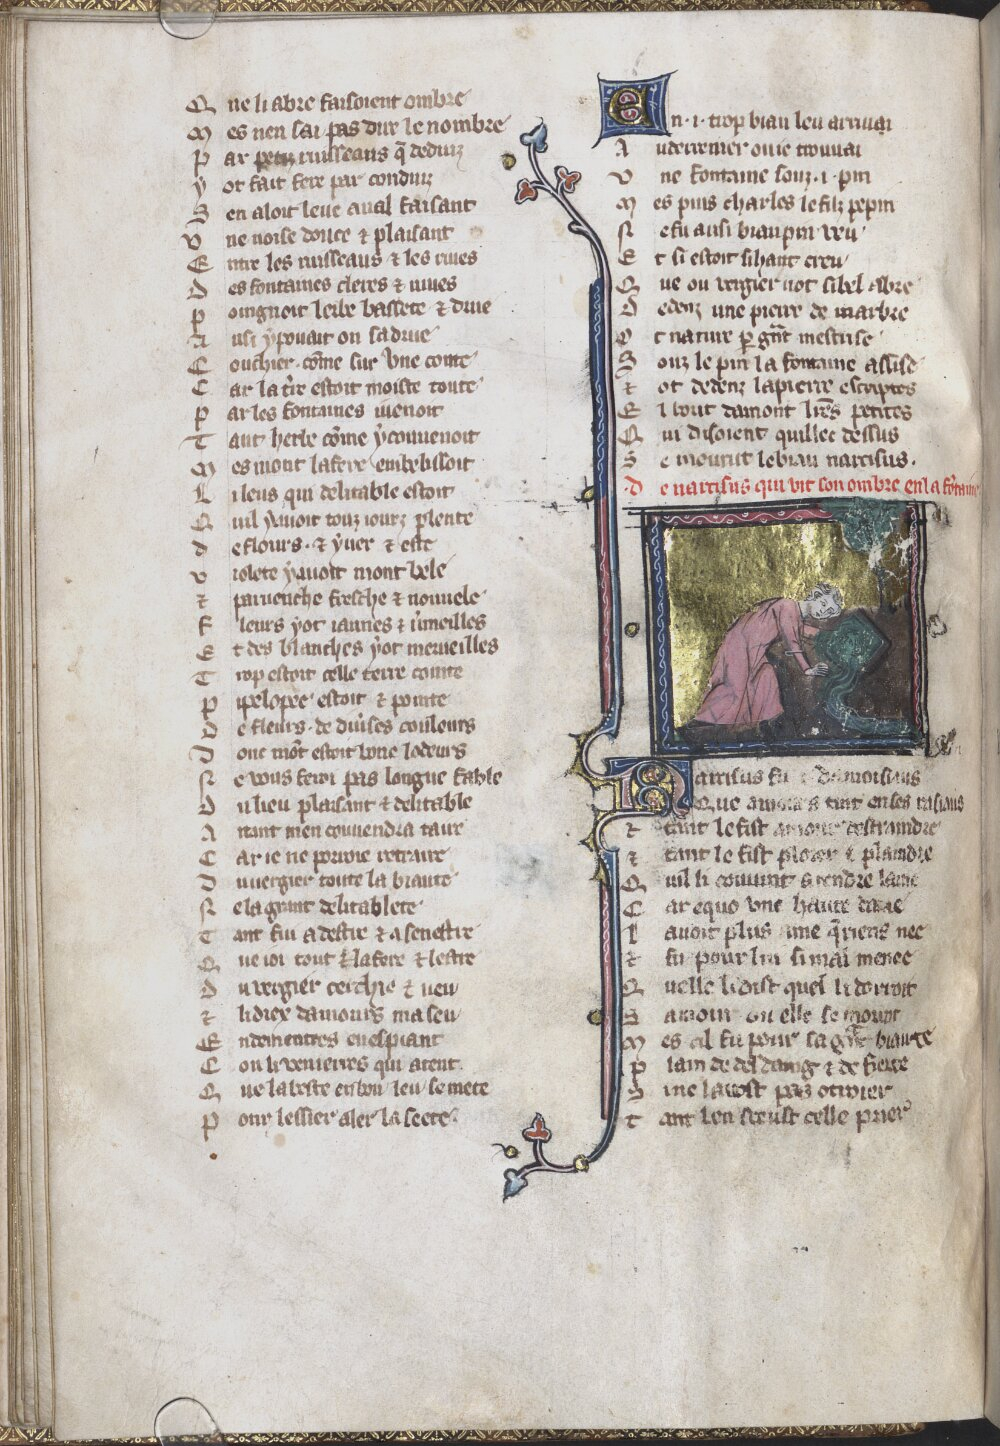 Q ne li abre faisoient ombre
M es nen sai pas dire le nombre
P ar petiz ruisseaus q̃ deduiz
Y ot fait fere par conduiz
S en aloit leue aual faisant
U ne noise douce ⁊ plaisant
E ntre les ruisseaus ⁊ les riues
D es fontaines cleres ⁊ uiues
P oingnoit lerbe bassete ⁊ drue
A usi y pouait on sa drue
C ouchier cõme sur vne coute
C ar la t̃re estoit moiste toute
P ar les fontaines uienoit
T ant herbe cõme y conuenoit
M es mont lafere embelissoit
L i leus qui delitable estoit
Q uil y auoit touz iourz plente
d e flours ⁊ yuer ⁊ este
v iolete y auoit mont bele
⁊ paruenche fresche ⁊ nouuele
F leurs y ot iaunes ⁊ ũmeilles
E t des blanches y ot merueilles
T rop estoit celle terre cointe
P ipelopee estoit ⁊ pointe
D e fleurs de diuses couleurs
D ont mõt estoit bone lodeurs
N e vous ferai pas longue fable
D u lieu plaisant ⁊ delitable
A ntant men conuendra taire
C ar ie ne porroie retraire
D u uergier toute la biaute
N e la grant delitablete
T ant fui a destre ⁊ a senestre
Q ue ioi tout lafere ⁊ lestre
D u vergier cerchie ⁊ ueu
⁊ li diex damours ma seu
E ndementres en espiant
C on li venierres qui atent
Q ue la beste en bon leu se mete
P our lessier aler la seete
E n .i. trop biau leu arriuai
A u derrenier ou ie trouuai
U ne fontaine souz .i. pin
M es puis charles le filz pepin
N e fu ausi biau pin veu
E t si estoit si haut creu
Q ue ou vergier not si bel abre
D edenz une pierre de marbre
O t nature p g̃nt mestrise
S ouz le pin la fontaine assise
⁊ ot dedenz la pierre escriptes
E l bout damont lr̃es petites
Q ui disoient quillec dessus
S e mourut le biau narcisus.
D e narcisus qui vit son ombre en la fõtaine
N arcisus fu .i. damoisiaus
Que amours tint en ses roisiaus
⁊ tant le fist amour destraindre
⁊ tant le fist plorer ⁊ plaindre
Q uil li couuint a rendre lame
C ar equo vne haute dame
L auoit plus ame q̃ riens nee
⁊ fu pour lui si mal menee
Q uelle li dist quel li dorroit
S amour ou elle se mourroit
M es cil fu pour sa g̃nt biaute
P lain de desdaing ⁊ de fierte
S i ne la vost pas otroier
T ant len sceust celle prier